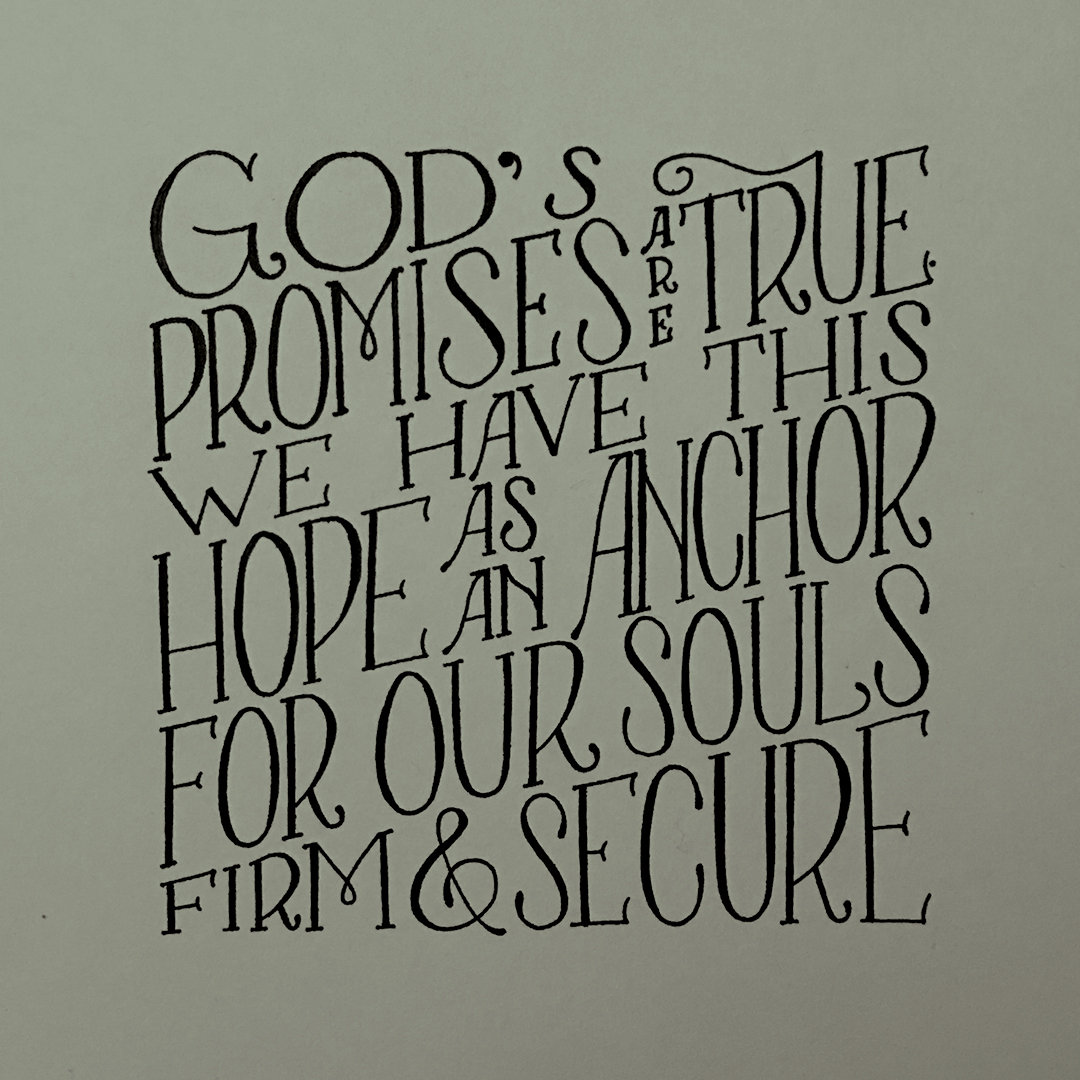 GOD'S
PROMISES ARE TRUE.
WE HAVE THIS
HOPE AS AN ANCHOR
FOR OUR SOULS
FIRM & SECURE